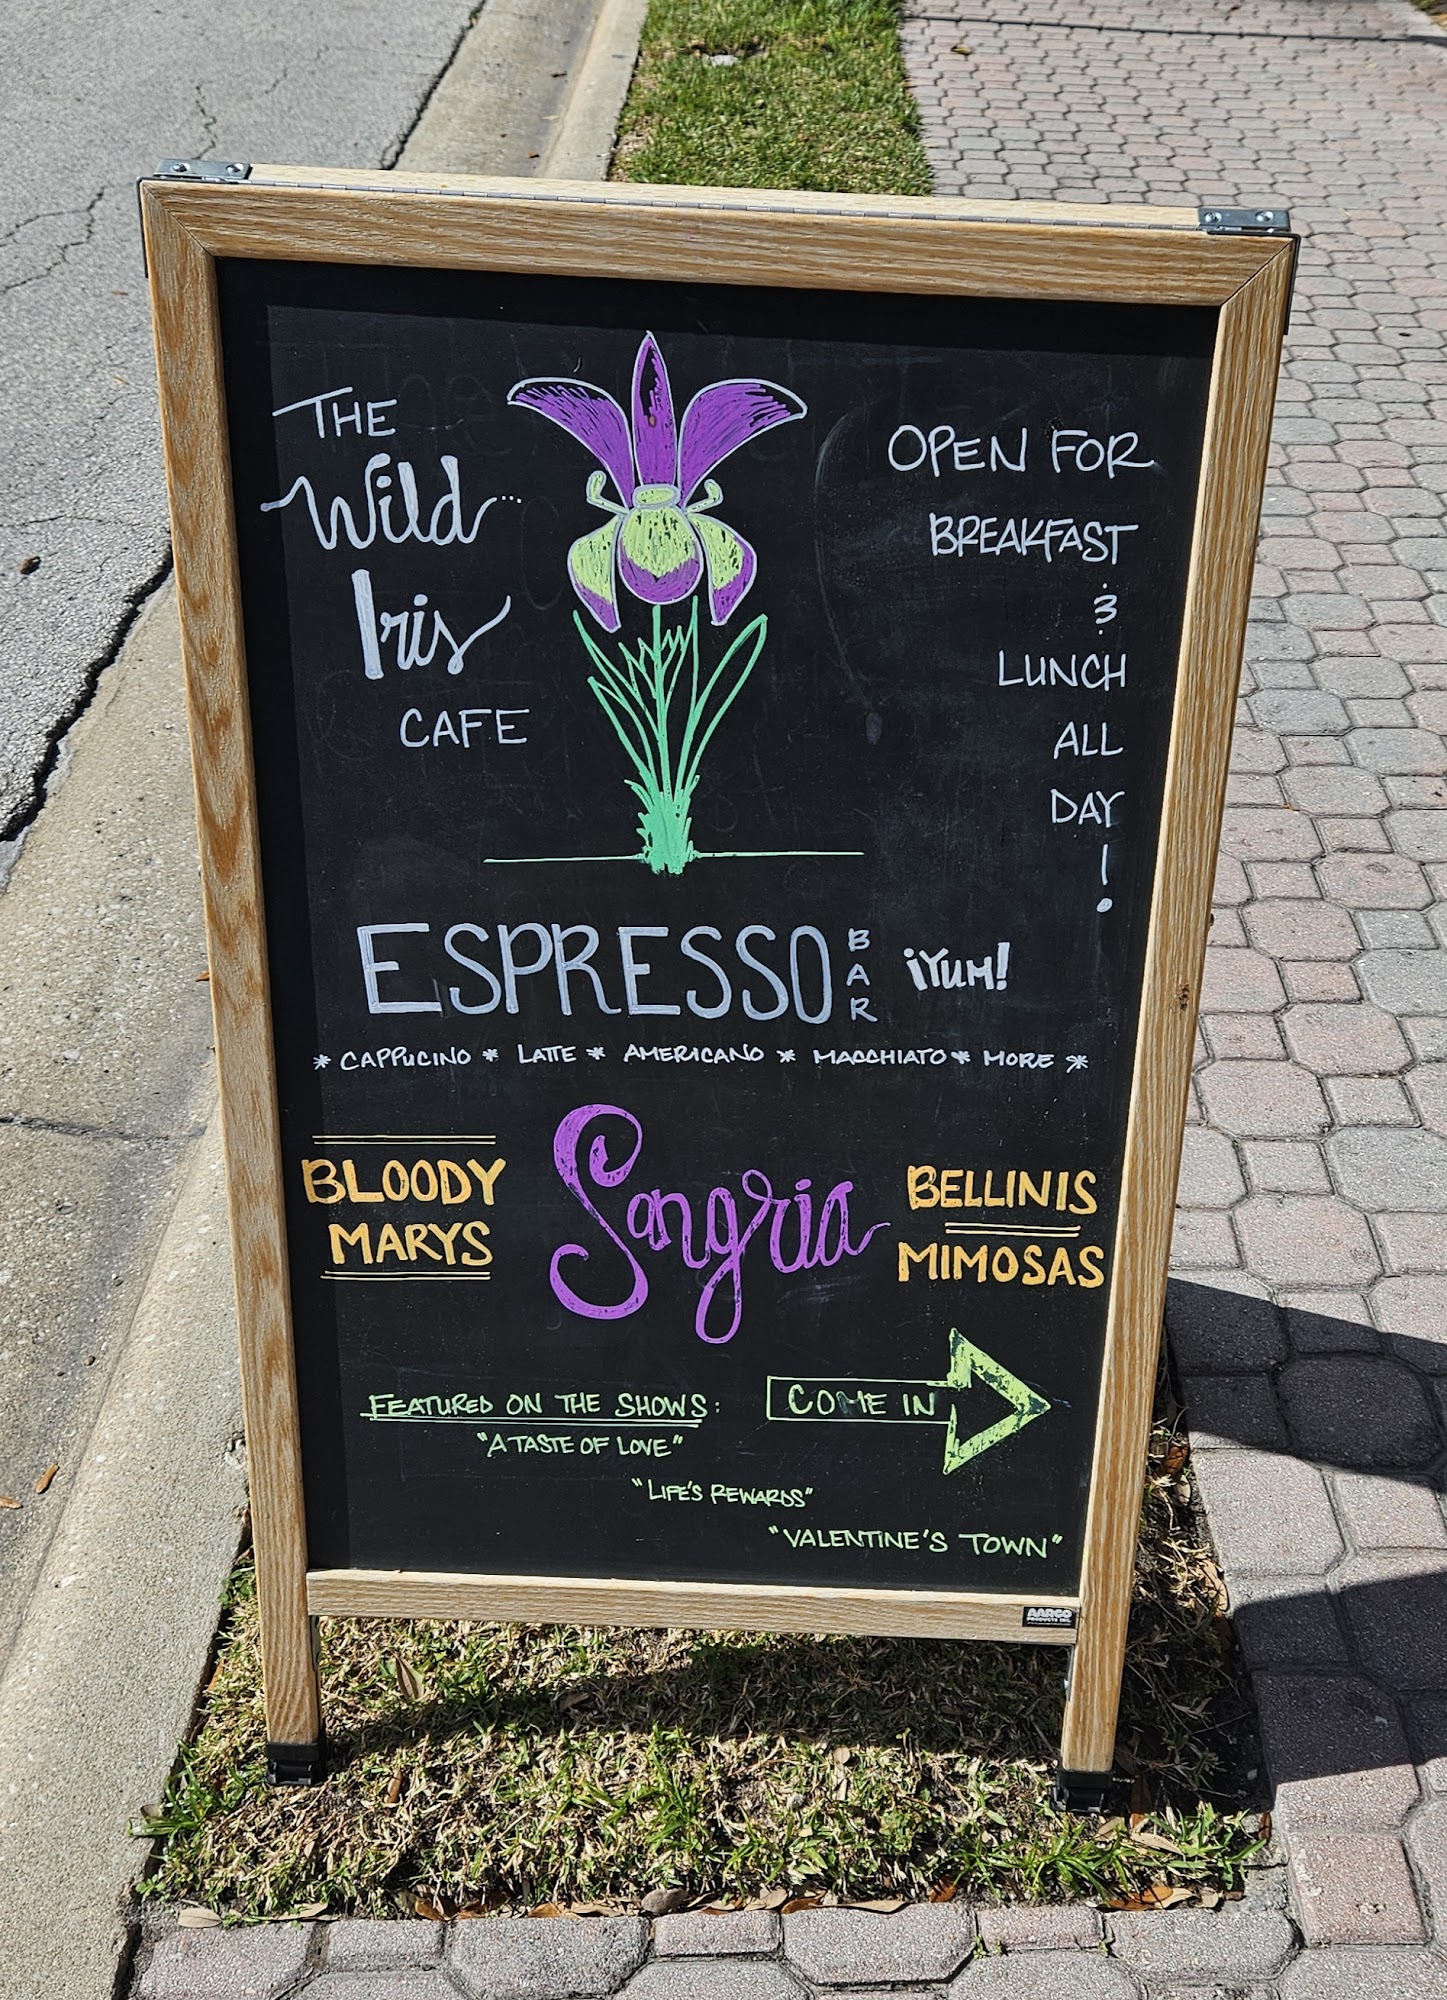 THE
Wild...
Iris
CAFE
OPEN FOR
BREAKFAST
&
LUNCH
ALL
DAY
!
ESPRESSO BAR ¡YUM!
* CAPPUCINO * LATTE * AMERICANO * MACCHIATO * MORE *
BLOODY
MARYS
Sangria
BELLINIS
MIMOSAS
FEATURED ON THE SHOWS:
"A TASTE OF LOVE"
"LIFE'S REWARDS"
"VALENTINE'S TOWN"
COME IN
AARCO
PRODUCTS INC.